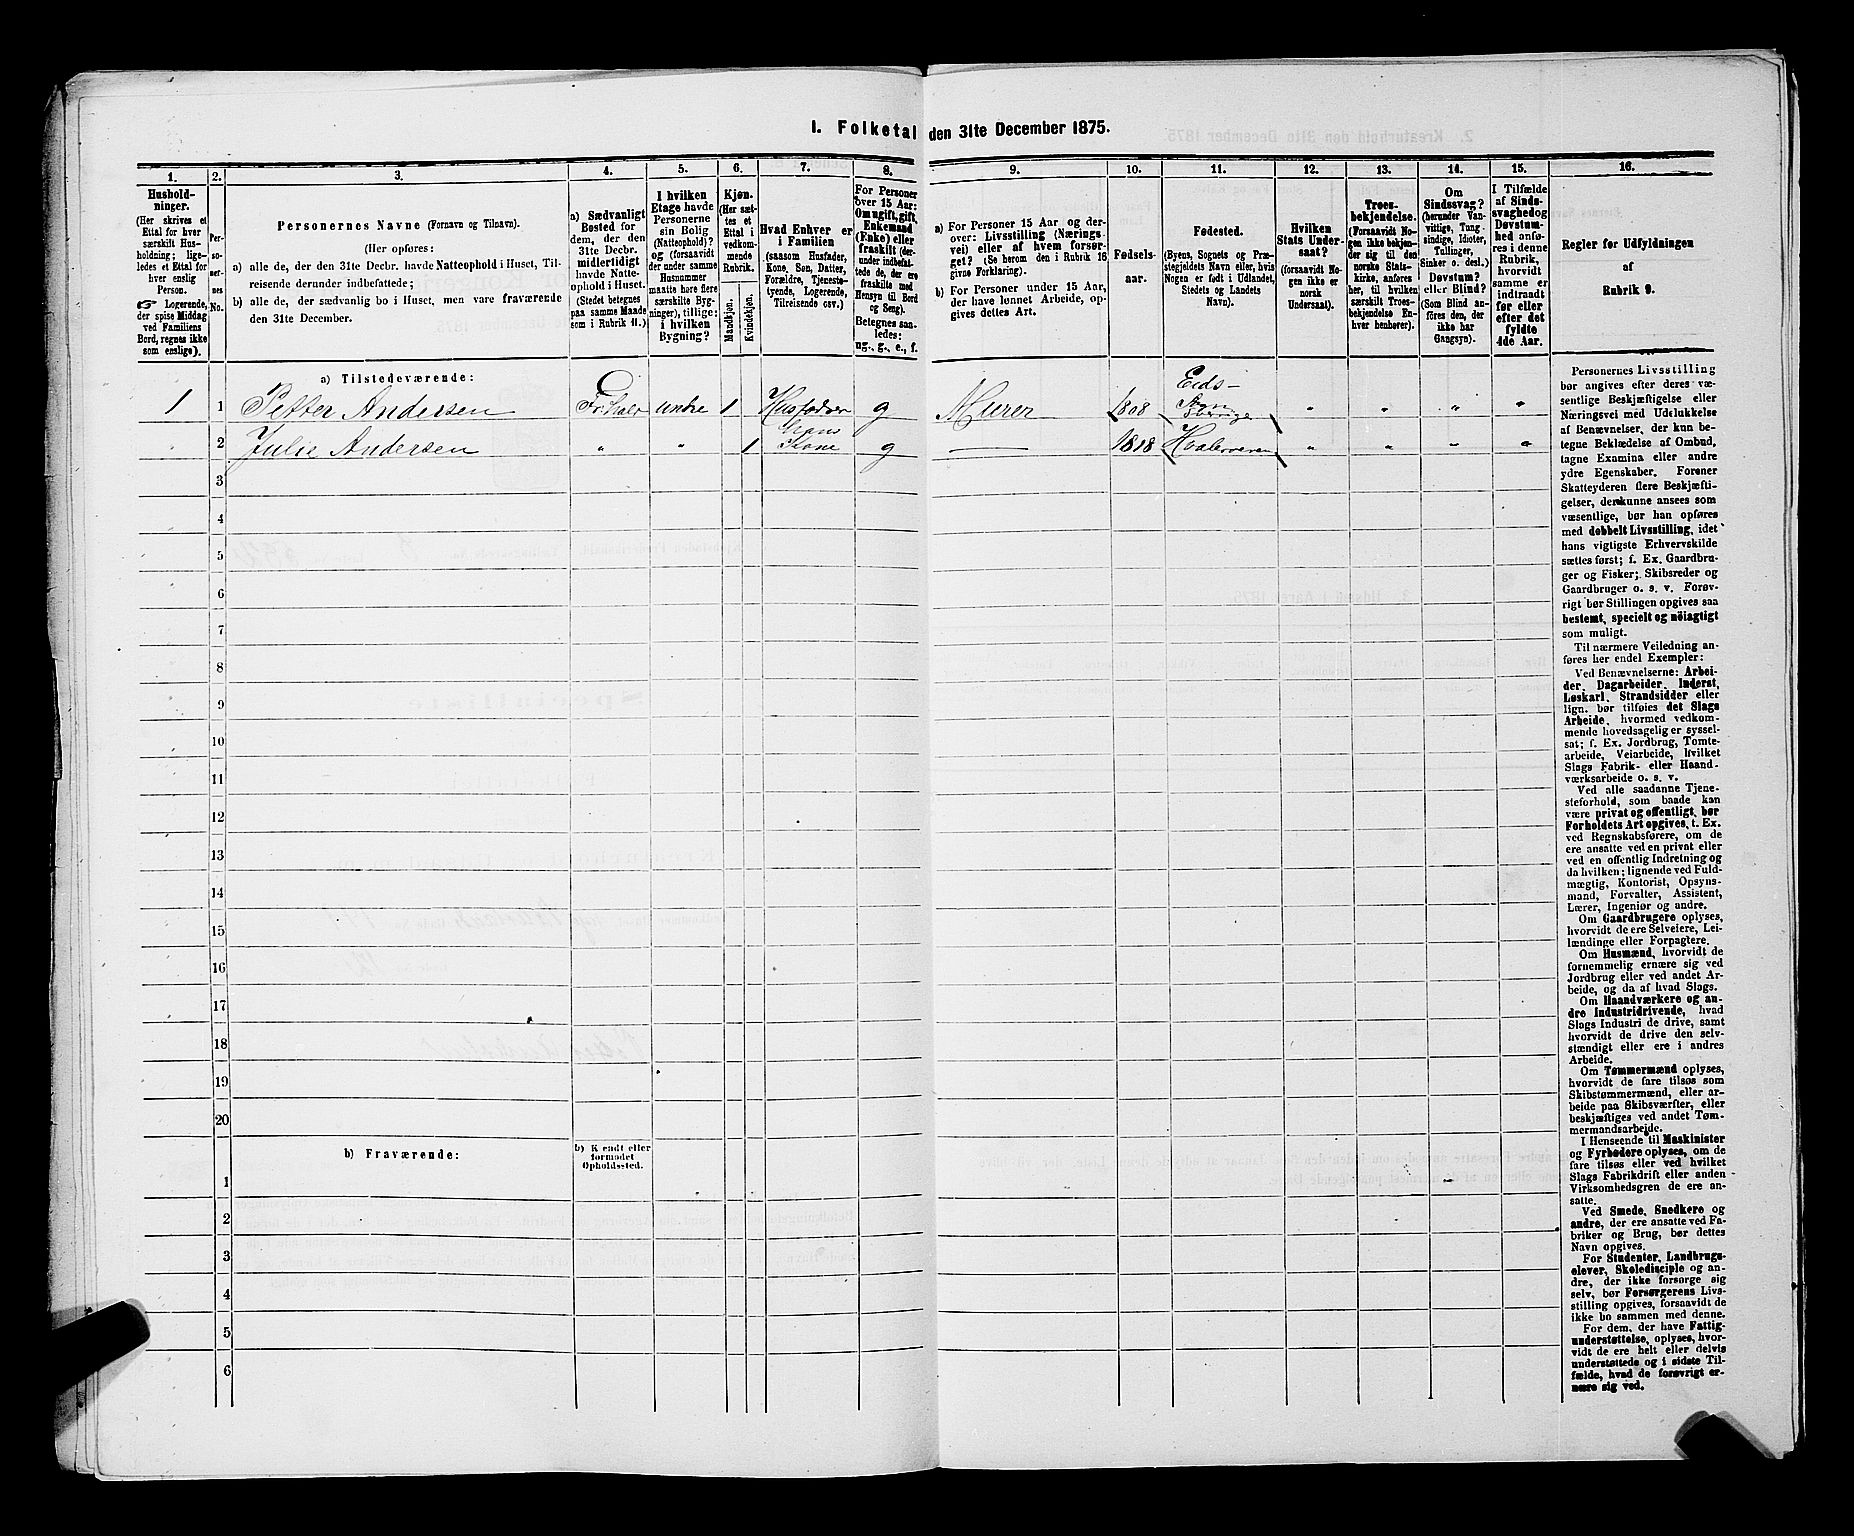 1. Folketal den 31te December 1875.
1.
Hushold-
ninger.
(Her skrives et
Ettal for hver
særskilt Hus-
holdning; lige-
ledes et Ettal for
hver enslig
Person.
☞ Logerende,
der spise Middag
ved Familiens
Bord, regnes ikke
som enslige).
2.
Per-
so-
ner-
nes
No.
3.
Personernes Navne (Fornavn og Tilnavn).
(Her opføres:
a) alle de, der den 31te Decbr. havde Natteophold i Huset, Til-
reisende derunder indbefattede;
b) alle de, der sædvanlig bo i Huset, men vare fraværende
den 31te December.
4.
a) Sædvanligt
Bosted for
dem, der den
31te Decbr.
midlertidigt
havde Natte-
ophold i Huset.
(Stedet betegnes
paa samme Maade
som i Rubrik 11.)
5.
I hvilken
Etage havde
Personerne
sin Bolig
(Natteophold)?
og (forsaavidt
der under samme
Husnummer
maatte høre flere
særskilte Byg-
ninger), tillige:
i hvilken
Bygning?
6.
Kjøn.
(Her sæt-
tes et
Ettal i
vedkom-
mende
Rubrik.
Mandkjøn.
Kvindekjøn.
7.
Hvad Enhver er
i Familien
(saasom Husfader,
Kone, Søn, Datter,
Forældre, Tjeneste-
tyende, Logerende,
Tilreisende osv.)
8.
For Personer
over 15 Aar:
Om ugift, gift,
Enkemand
(Enke) eller
fraskilt (der-
under indbefat-
tede de, der ere
fraskilte med
Hensyn til Bord
og Seng).
Betegnes saa-
ledes:
ug., g., e., f.
9.
a) For Personer 15 Aar og der-
over: Livsstilling (Nærings-
vei) eller af hvem forsør-
get? (Se herom den i Rubrik 16
givne Forklaring).
b) For Personer under 15 Aar,
der have lønnet Arbeide, op-
gives dettes Art.
10.
Fødsels-
aar.
11.
Fødested.
(Byens, Sognets og Præ-
stegjeldets Navn eller, hvis
Nogen er født i Udlandet,
Stedets og Landets
Navn).
12.
Hvilken
Stats Under-
saat?
(forsaavidt No-
gen ikke er
norsk
Undersaat).
13.
Troes-
bekjendelse.
(Forsaavidt No-
gen ikke bekjen-
der sig til den
norske Stats-
kirke, anføres
her, til hvilken
særskilt Troes-
bekjendelse En-
hver henhører).
14.
Om
Sindssvag?
(herunder Van-
vittige, Tung-
sindige, Idioter,
Tullinger,
Sinker o. desl.)
Døvstum?
eller Blind?
(Som Blind an-
föres den, der
ikke har
Gangsyn).
15.
I Tilfælde
af Sinds-
svaghed og
Døvstum-
hed anfø-
res i denne
Rubrik,
hvorvidt
samme er
indtraadt
før eller
efter det
fyldte
4de Aar.
16.
Regler før Udfyldningen
af
Rubrik 9.
a) Tilstedeværende:
1 1 Petter Andersen undre 1 Husfader g Murer 1808 " " " "
2 Julie Andersen " " 1 Hans Kone g — 1818 " " " "
3
4
5
6
7
8
9
10
11
12
13
14
15
16
17
18
19
20
b) Fraværende:
b) Kendt eller
formodet
Opholdssted.
1
2
3
4
5
6
Personernes Livsstilling
bør angives efter deres væ-
sentlige Beskjæftigelse eller
Næringsvei med Udelukkelse
af Benævnelser, der kun be-
tegne Beklædelse af Ombud,
tagne Examina eller andre
ydre Egenskaber. Forener
Skatteyderen flere Beskjæfti-
gelser, der kunne ansees som
væsentlige, bør han opføres
med dobbelt Livsstilling, idet
hans vigtigste Erhvervskilde
sættes først; f. Ex. Gaardbru-
ger og Fisker; Skibsreder og
Gaardbruger o. s. v. Forøv-
rigt bør Stillingen opgives saa
bestemt, specielt og nöiagtigt
som muligt.
Til nærmere Veiledning an-
føres her endel Exempler:
Ved Benævnelserne: Arbei-
der, Dagarbeider, Inderst,
Løskarl, Strandsidder eller
lign. bør tilføies det Slags
Arbeide, hvormed vedkom-
mende hovedsagelig er syssel-
sat; f. Ex. Jordbrug, Tomte-
arbeide, Veiarbeide, hvilket
Slags Fabrik- eller Haand-
værksarbeide o. s. v.
Ved alle saadanne Tjene-
steforhold, som baade kan
være privat og offentligt, bør
Forholdets Art opgives, t. Ex.
ved Regnskabsførere, om de
ere ansatte ved en privat eller
ved en offentlig Indretning og
da hvilken; lignende ved Fuld-
mægtig, Kontorist, Opsyns-
mand, Forvalter, Assistent,
Lærer, Ingeniør og andre.
Om Gaardbrugere oplyses,
hvorvidt de ere Selveiere, Lei-
lændinge eller Forpagtere.
Om Husmænd, hvorvidt de
fornemmelig ernære sig ved
Jordbrug eller ved andet Ar-
beide, og da af hvad Slags.
Om Haandværkere og an-
dre Industridrivende, hvad
Slags Industri de drive, samt
hvorvidt de drive den selv-
stændigt eller ere i andres
Arbeide.
Om Tømmermænd oplyses,
hvorvidt de fare tilsøs som
Skibstømmermænd, eller ar-
beide paa Skibsværfter, eller
beskjæftiges ved andet Tøm-
mermandsarbeide.
I Henseende til Maskinister
og Fyrbødere oplyses, om de
fare tilsøs eller ved hvilket
Slags Fabrikdrift eller anden
Virksomhedsgren de ere an-
satte.
Ved Smede, Snedkere og
andre, der ere ansatte ved Fa-
briker og Brug, bør dettes
Navn opgives.
For Studenter, Landbrugs-
elever, Skoledisciple og an-
dre, der ikke forsørge sig
selv, bør Forsørgerens Livs-
stilling opgives, forsaavidt de
ikke bo sammen med denne.
For dem, der have Fattig-
understøttelse, oplyses, hvor-
vidt de ere helt eller delvis
understøttede og i sidste Til-
fælde, hvad de forøvrigt er-
nære sig ved.